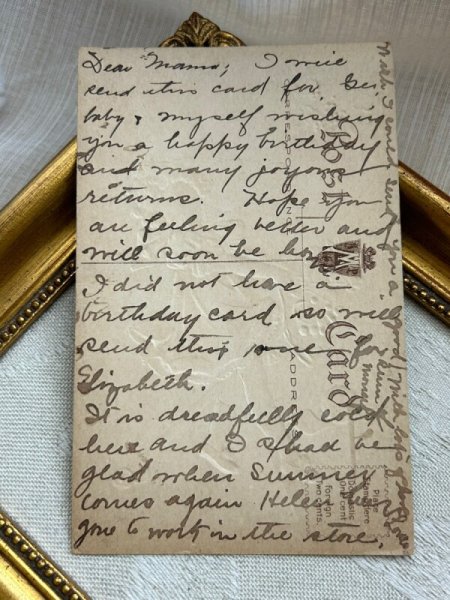 Dear Mama; I will
send this card for Geo.
baby & myself wishing
you a happy birthday
and many joyous
returns. Hope you
are feeling better and
will soon be
I did not have a
birthday card so will
send this one for
Elizabeth.
It is dreadfully cold
here and I shall be
glad when Summer
comes again Helen has
gone to work in the store.
Wish I could send you a
Post Card
CORRESPONDENCE
ADDRESS
Place
Stamp Here
Domestic
One cent
Foreign
Two cents.